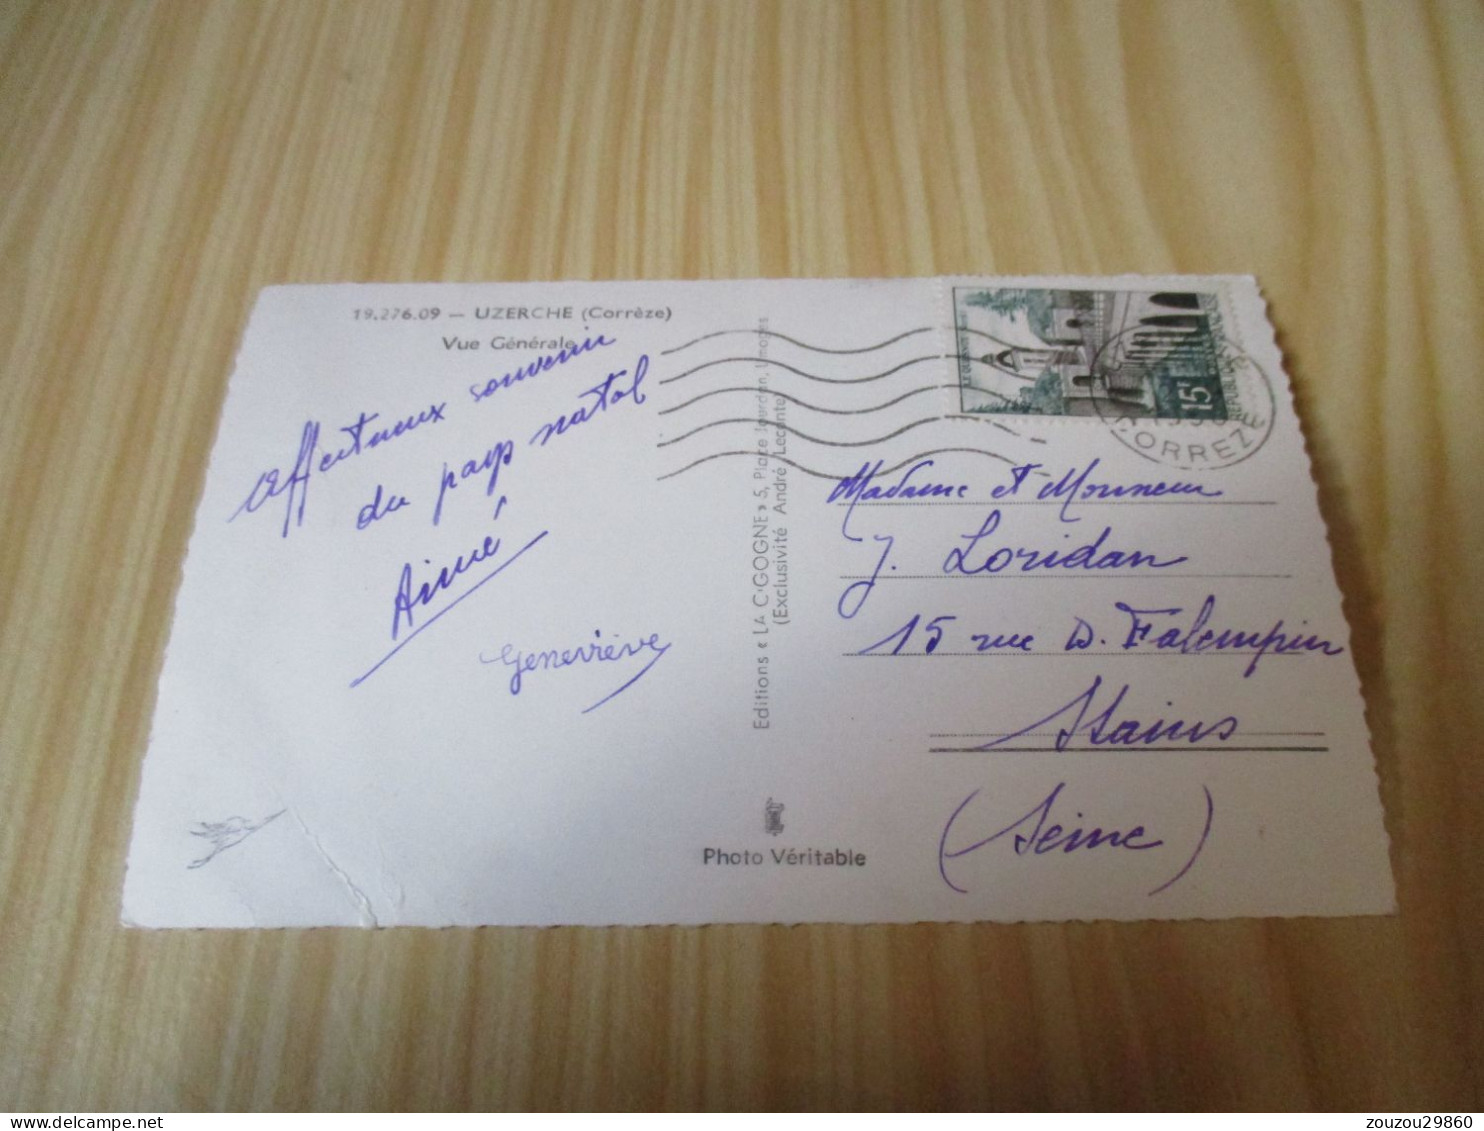 19.276.09 — UZERCHE (Corrèze)
Vue Générale
Affectueux souvenir
du pays natal
Aimé
Geneviève
Editions « LA CIGOGNE » 5, Place Jourdan, Limoges
(Exclusivité André Leconte)
Photo Véritable
LE QUESNOY
15F
REPUBLIQUE FRANÇAISE
CORREZE
Madame et Monsieur
J. Loridan
15 rue D. Falempin
Stains
(Seine)
zouzou29860